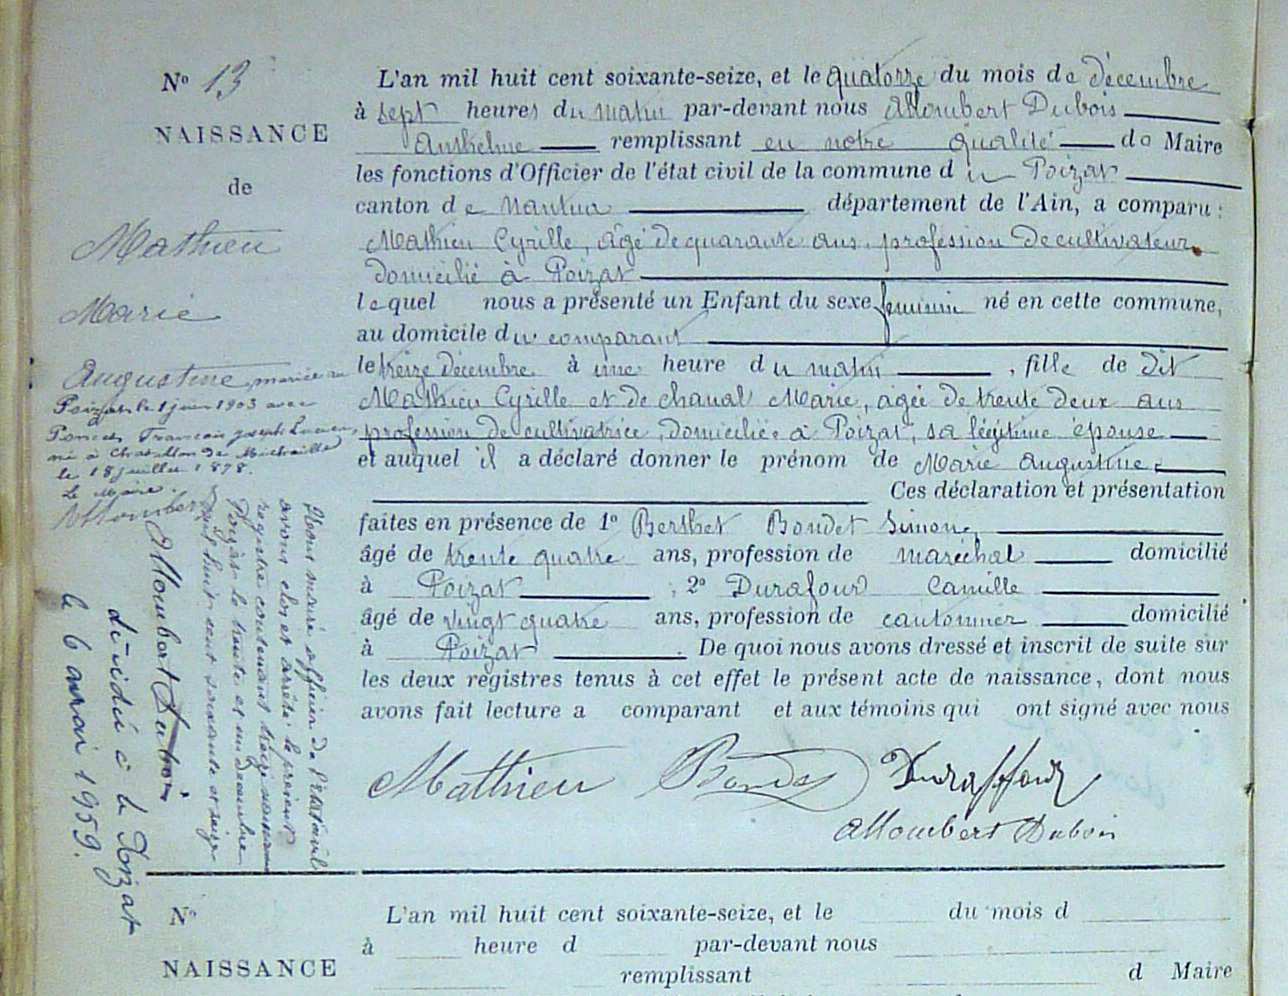 N° 13
NAISSANCE
de
Mathieu
Marie
Augustine, mariée au
Poizat le 1 juin 1903 avec
Poncet François Joseph Lucien,
né à Chatillon de Michaille
le 18 juillet 1878.
Le Maire.
Allombert
L'an mil huit cent soixante-seize, et le quatorze du mois de décembre
à sept heures du matin par-devant nous Allombert Dubois
Anthelme remplissant en notre qualité de Maire
les fonctions d'Officier de l'état civil de la commune du Poizat
canton de Nantua département de l'Ain, a comparu :
Mathieu Cyrille, âgé de quarante ans, profession de cultivateur
domicilié à Poizat
lequel nous a présenté un Enfant du sexe féminin né en cette commune,
au domicile du comparant
le treize décembre à une heure du matin, fille de dit
Mathieu Cyrille et de Chanal Marie, agée de trente deux ans
profession de cultivatrice, domiciliée à Poizat, sa légitime épouse
et auquel il a déclaré donner le prénom de Marie Augustine.
Ces déclaration et présentation
faites en présence de 1° Berthet Bondet Simon,
âgé de trente quatre ans, profession de maréchal domicilié
à Poizat, 2° Durafour Camille
âgé de vingt quatre ans, profession de cantonnier domicilié
à Poizat. De quoi nous avons dressé et inscrit de suite sur
les deux registres tenus à cet effet le présent acte de naissance, dont nous
avons fait lecture a comparant et aux témoins qui ont signé avec nous
Mathieu Bondet Duraffour
Allombert Dubois
Nous maire officier de l'état civil
avons clos et arrêté le présent
registre contenant treize naissances
Poizat le trente et un décembre
mil huit cent soixante et seize
Allombert Dubois
décédée à le Poizat
le 6 mai 1959.
N°
NAISSANCE
L'an mil huit cent soixante-seize, et le du mois d
à heure d par-devant nous
remplissant d Maire